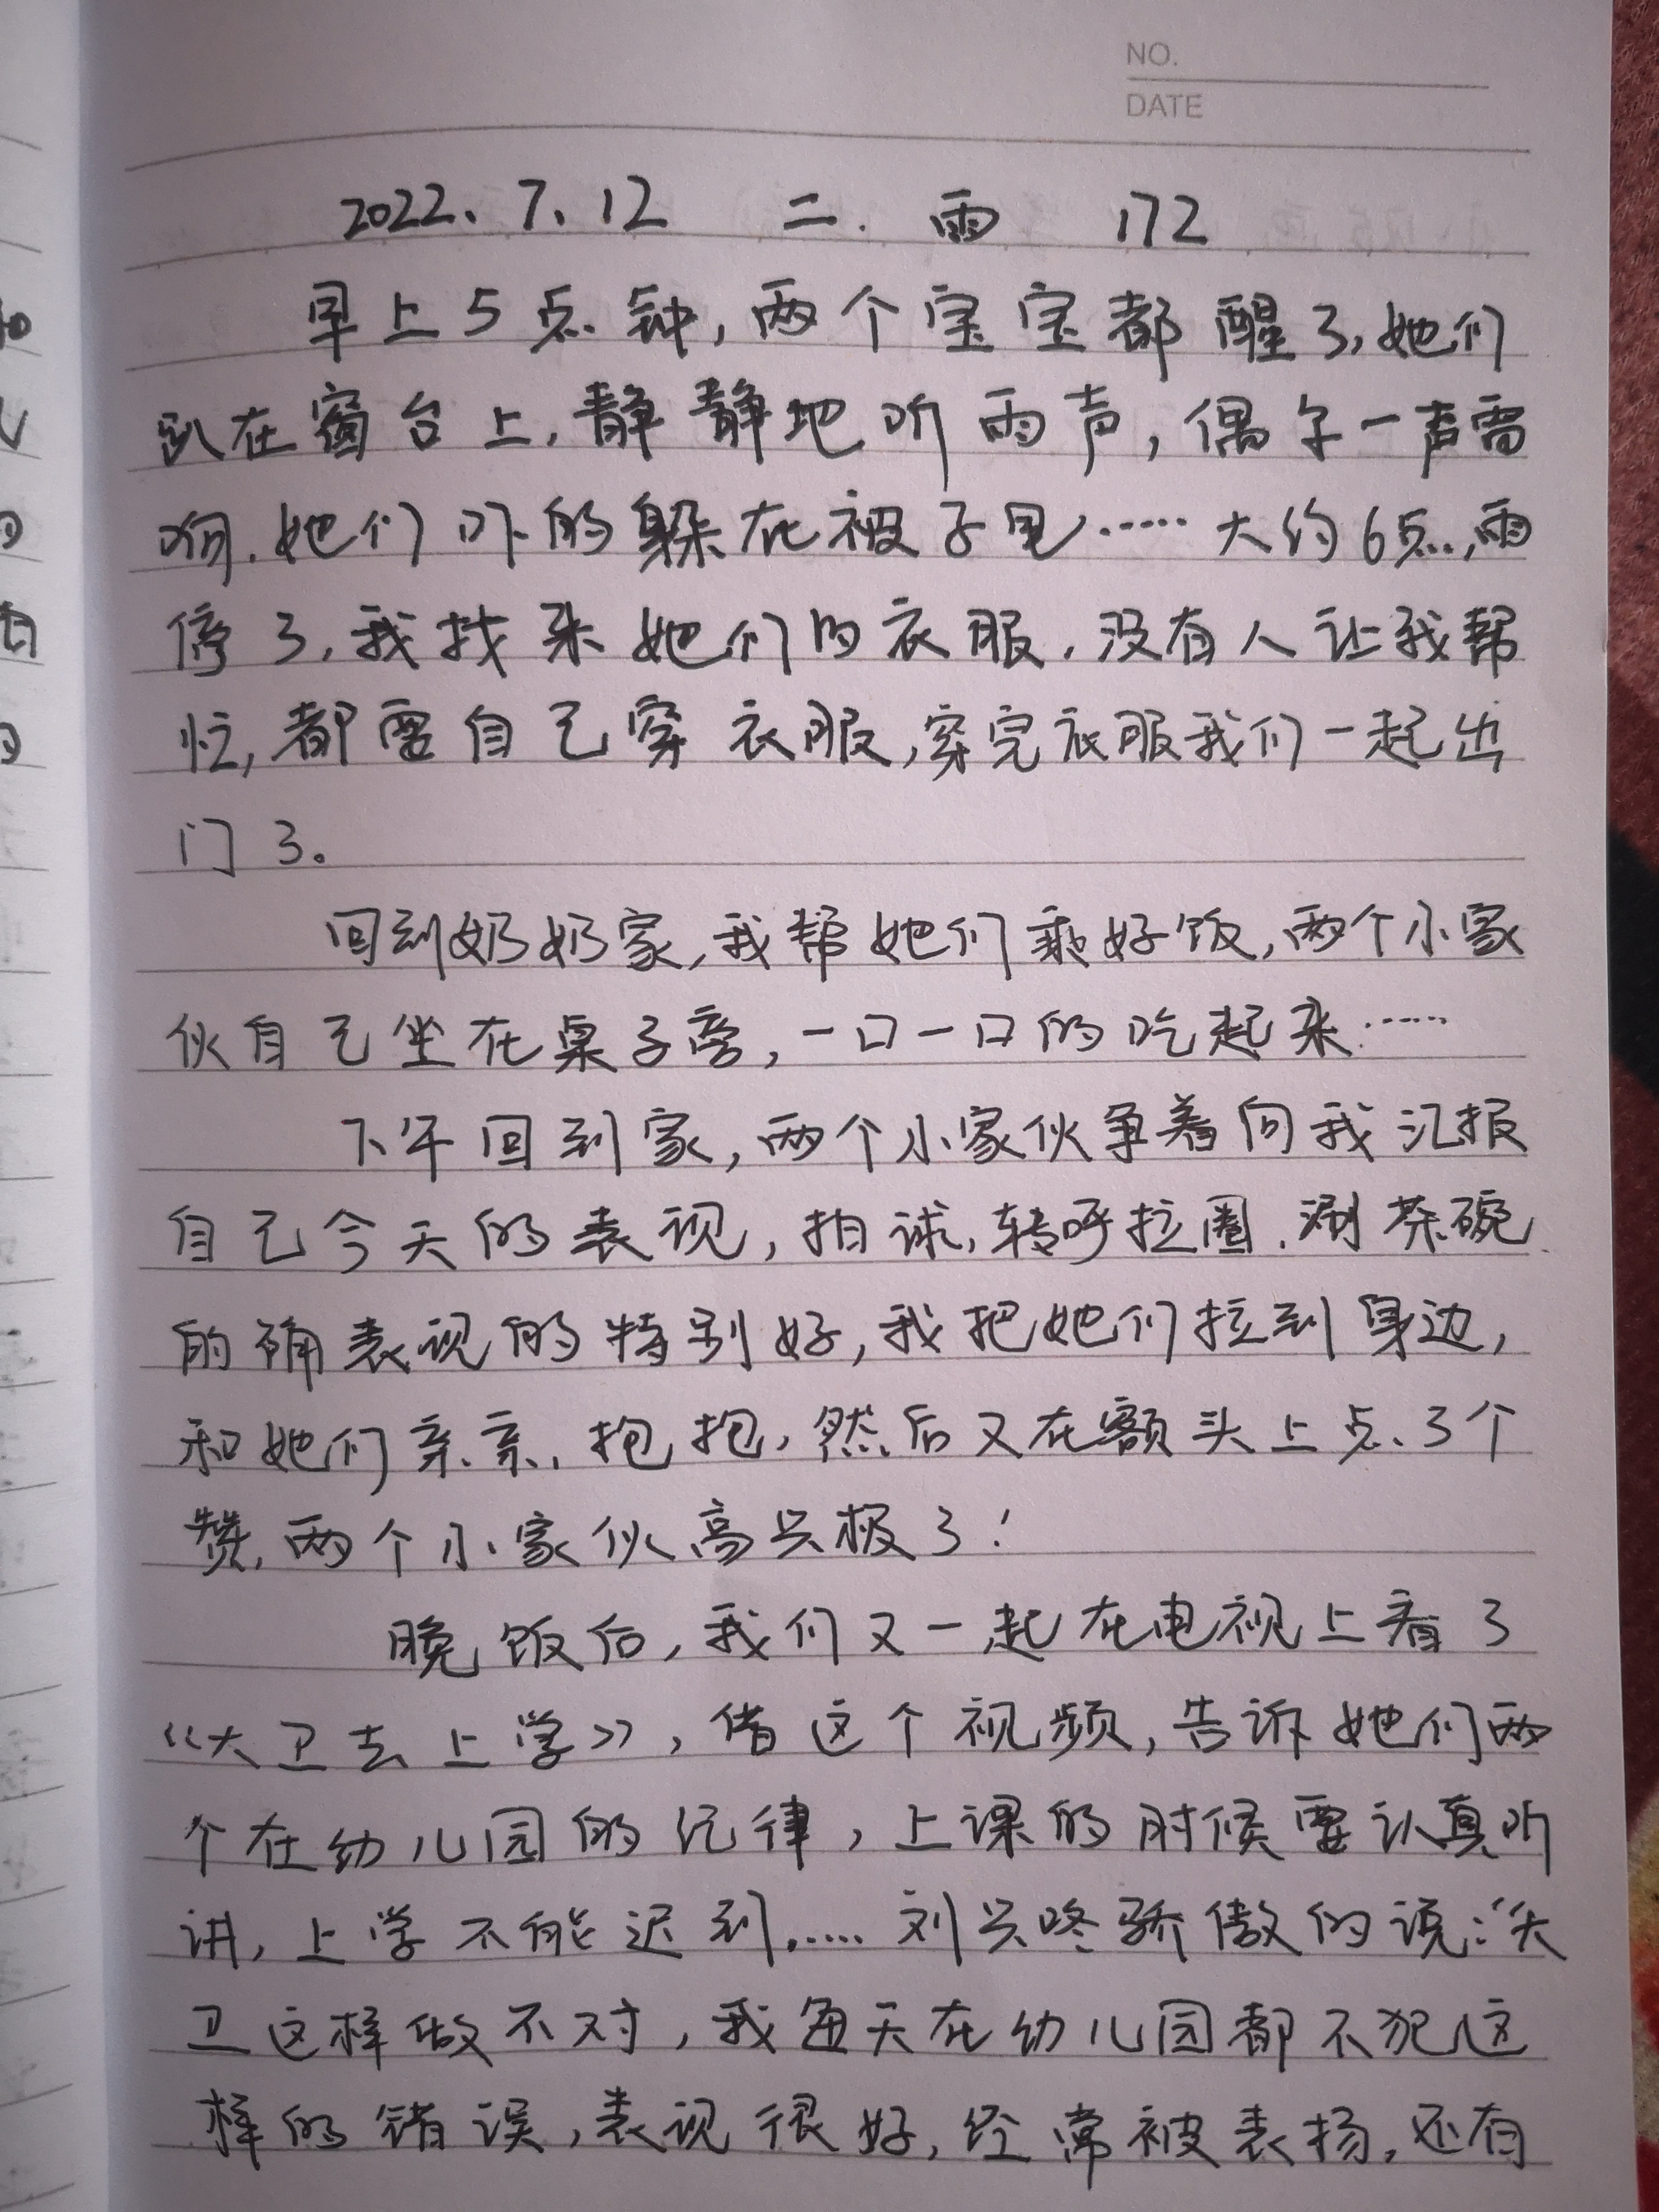 NO.
DATE
2022、7、12 二. 雨 172
早上5点钟,两个宝宝都醒了,她们
趴在窗台上,静静地听雨声,偶尔一声雷
响.她们吓的躲在被子里……大约6点,雨
停了,我找来她们的衣服,没有人让我帮
忙,都要自己穿衣服,穿完衣服我们一起出
门了。
回到奶奶家,我帮她们乘好饭,两个小家
伙自己坐在桌子旁,一口一口的吃起来……
下午回到家,两个小家伙争着向我汇报
自己今天的表现,拍球,转呼拉圈.涮茶碗.
的确表现的特别好,我把她们拉到身边,
和她们亲亲,抱抱,然后又在额头上点了个
赞,两个小家伙高兴极了!
晚饭后,我们又一起在电视上看了
《大卫去上学》,借这个视频,告诉她们两
个在幼儿园的纪律,上课的时候要认真听
讲,上学不能迟到……刘兴咚骄傲的说:“大
卫这样做不对,我每天在幼儿园都不犯这
样的错误,表现很好,经常被表扬,还有